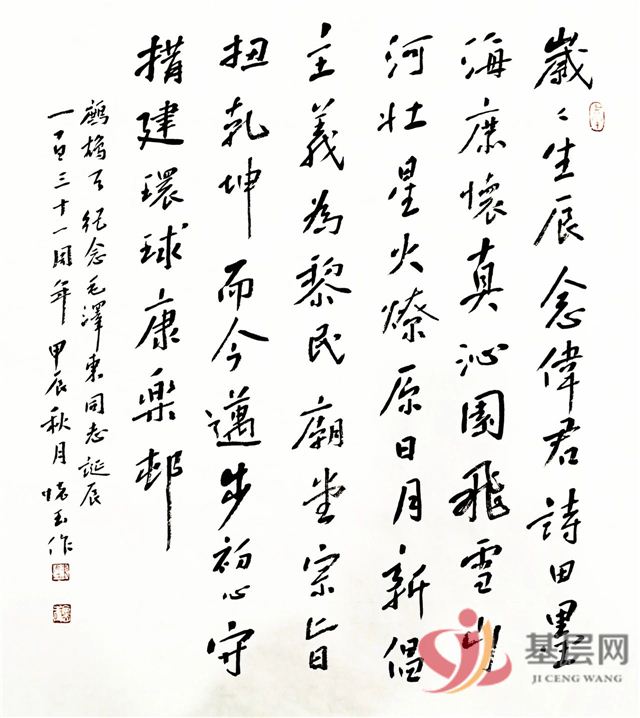 歲〻生辰念偉君詩田墨
海庶懷真沁園飛雪山
河壯星火燎原日月新倡
主義為黎民廟堂宗旨
扭乾坤而今邁步初心守
搆建環球康樂邨
鷓鴣天紀念毛澤東同志誕辰
一百三十一周年甲辰秋月玉作
基层网
JI CENG WANG